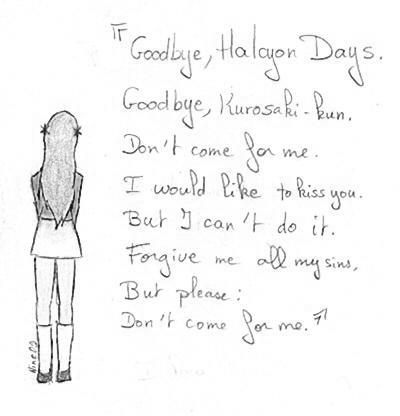 『Goodbye, Halcyon Days.
Goodbye, Kurosaki-kun.
Don't come for me.
I would like to kiss you.
But I can't do it.
Forgive me all my sins,
But please:
Don't come for me.』